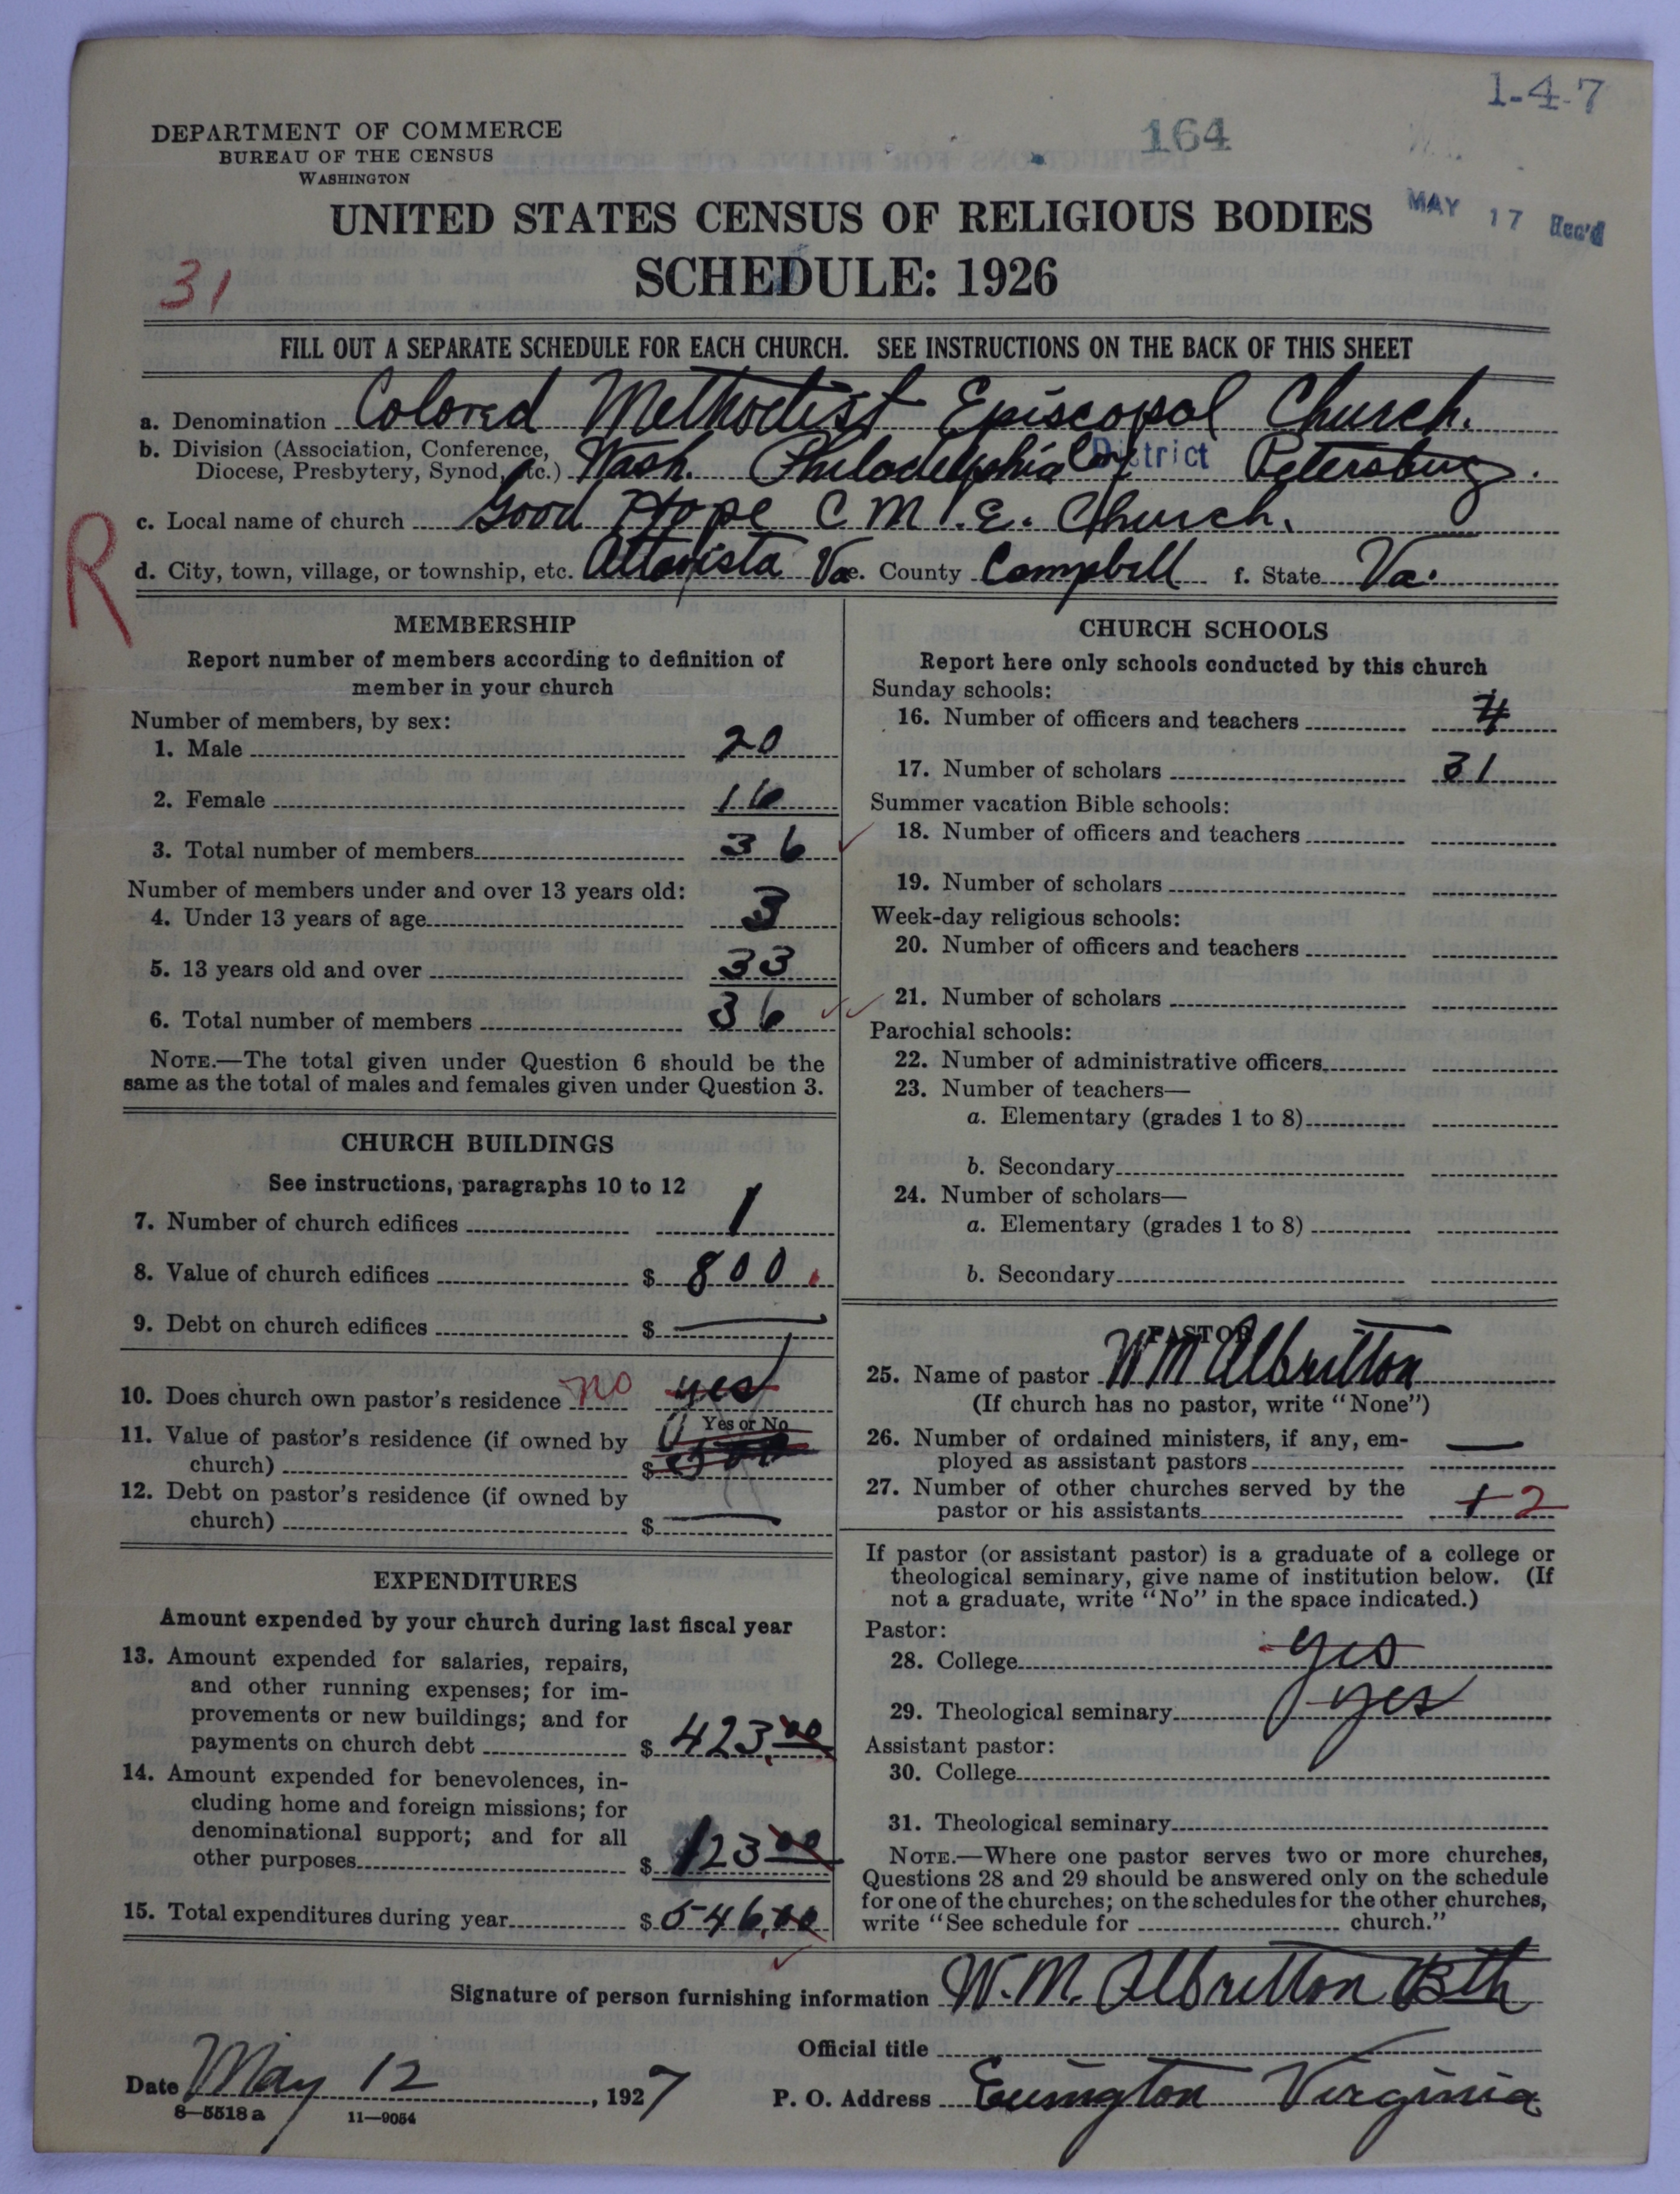 1-4-7
DEPARTMENT OF COMMERCE
BUREAU OF THE CENSUS
WASHINGTON
164
UNITED STATES CENSUS OF RELIGIOUS BODIES
MAY 17 Rec'd
SCHEDULE: 1926
31
FILL OUT A SEPARATE SCHEDULE FOR EACH CHURCH. SEE INSTRUCTIONS ON THE BACK OF THIS SHEET
a. Denomination Colored Methodist Episcopal Church.
b. Division (Association, Conference,
Diocese, Presbytery, Synod, etc.) Wash. Philadelphia District Petersburg.
c. Local name of church Good Hope C. M. E. Church.
R
d. City, town, village, or township, etc. Altavista Va e. County Campbell f. State Va.
MEMBERSHIP
Report number of members according to definition of
member in your church
Number of members, by sex:
1. Male 20
2. Female 16
3. Total number of members 36
Number of members under and over 13 years old:
4. Under 13 years of age 3
5. 13 years old and over 33
6. Total number of members 36
NOTE.—The total given under Question 6 should be the
same as the total of males and females given under Question 3.
CHURCH BUILDINGS
See instructions, paragraphs 10 to 12
7. Number of church edifices 1
8. Value of church edifices $ 800.
9. Debt on church edifices $ —
10. Does church own pastor's residence no yes
Yes or No
11. Value of pastor's residence (if owned by
church) $
12. Debt on pastor's residence (if owned by
church) $ —
EXPENDITURES
Amount expended by your church during last fiscal year
13. Amount expended for salaries, repairs,
and other running expenses; for im-
provements or new buildings; and for
payments on church debt $ 423.00
14. Amount expended for benevolences, in-
cluding home and foreign missions; for
denominational support; and for all
other purposes $ 123 00
15. Total expenditures during year $ 546.00
CHURCH SCHOOLS
Report here only schools conducted by this church
Sunday schools:
16. Number of officers and teachers 4
17. Number of scholars 31
Summer vacation Bible schools:
18. Number of officers and teachers
19. Number of scholars
Week-day religious schools:
20. Number of officers and teachers
21. Number of scholars
Parochial schools:
22. Number of administrative officers
23. Number of teachers—
a. Elementary (grades 1 to 8)
b. Secondary
24. Number of scholars—
a. Elementary (grades 1 to 8)
b. Secondary
PASTOR
25. Name of pastor W M Albritton
(If church has no pastor, write "None")
26. Number of ordained ministers, if any, em-
ployed as assistant pastors —
27. Number of other churches served by the
pastor or his assistants 1 2
If pastor (or assistant pastor) is a graduate of a college or
theological seminary, give name of institution below. (If
not a graduate, write "No" in the space indicated.)
Pastor:
28. College yes
29. Theological seminary yes
Assistant pastor:
30. College
31. Theological seminary
NOTE.—Where one pastor serves two or more churches,
Questions 28 and 29 should be answered only on the schedule
for one of the churches; on the schedules for the other churches,
write "See schedule for church."
Signature of person furnishing information W. M. Albritton Bth
Official title
Date May 12, 1927 P. O. Address Evington Virginia
8—5518 a 11—9054